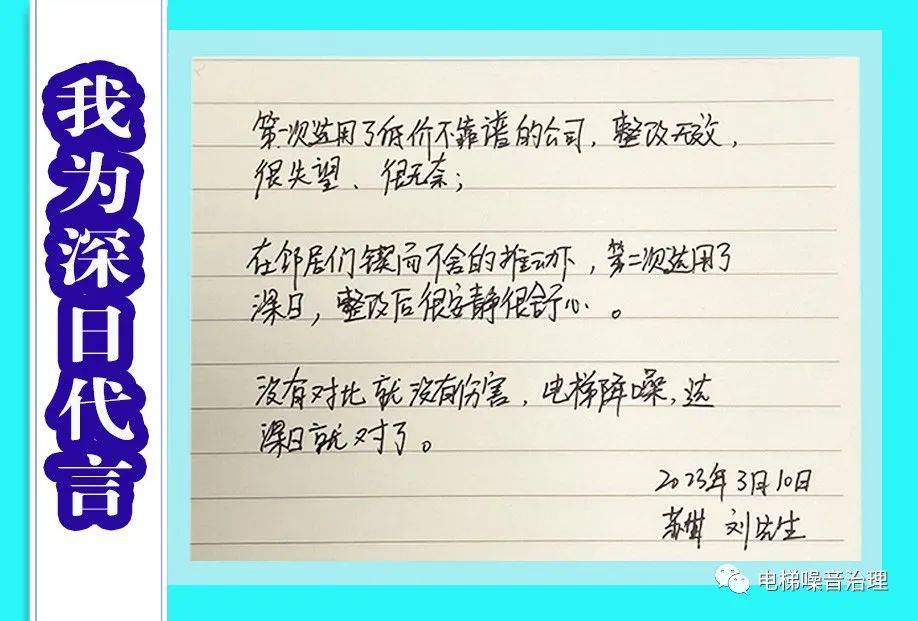 我为深日代言
第一次选用了低价不靠谱的公司，整改无效，
很失望、很无奈；
在邻居们锲而不舍的推动下，第二次选用了
深日，整改后很安静很舒心。
没有对比就没有伤害，电梯降噪，选
深日就对了。
2023年3月10日
苏州 刘先生
电梯噪音治理